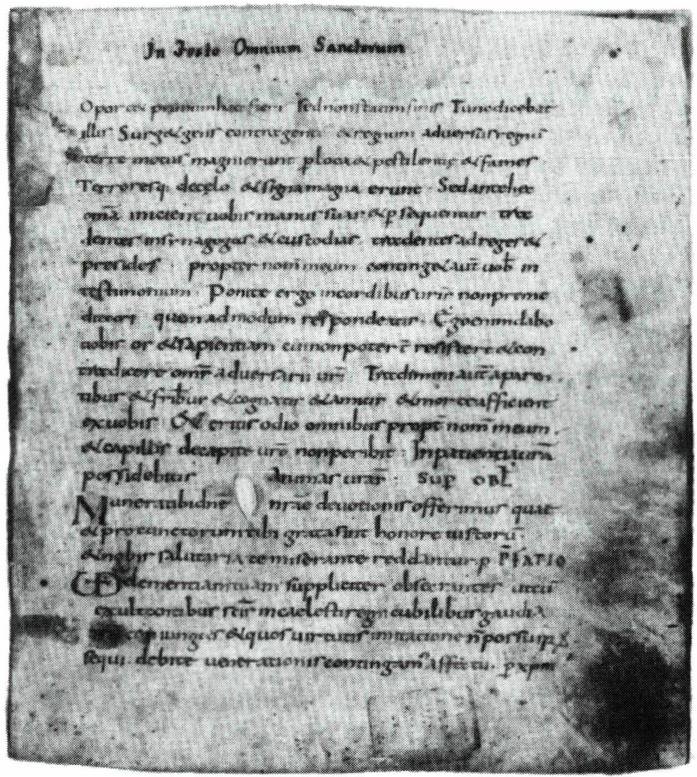 In Festo Omnium Sanctorum
Oportet primum haec fieri Sed non statim finis Tunc dicebat
illis Surget gens contra gentem et regnum adversus regnū
terre motus magni erunt p loca et pestilentię et fames
Terroresq; de celo et signa magna erunt Sed ante hec
omā inicient uobis manus suas et psequentur trā
dentes in synagogas et custodias tradentes ad reges et
presides propter nom̄ meum continget aut̄ uob in
testimonium Ponite ergo in cordibus uris non preme
ditari quemadmodum respondeatis Ego enim dabo
uobis os et sapientiam cui non poter̄ resistere et con
tradicere om̄s aduersarii uri Trademini aut̄ a paren
tibus et frībus et cognatis et amicis et morte afficient
ex uobis Et eritis odio omnibus propt̄ nom̄ meum
et capillus de capite uro non peribit In patientia urā
possidebitis animas uras SUP OBL
Munera tibi dn̄e nrae deuotionis offerimus quae
et pro cunctorum tibi grata sint honore iustorū
et nobis salutaria te miserante reddantur p PFATIO
clementiam tuam suppliciter obsecrantes ut cū
exultantibus scīs in caelestis regni cubilibus gaudia
coniunges et quos uirtutis imitatione n possumus
sequi debite uenerationis contingamus affectu p xpm